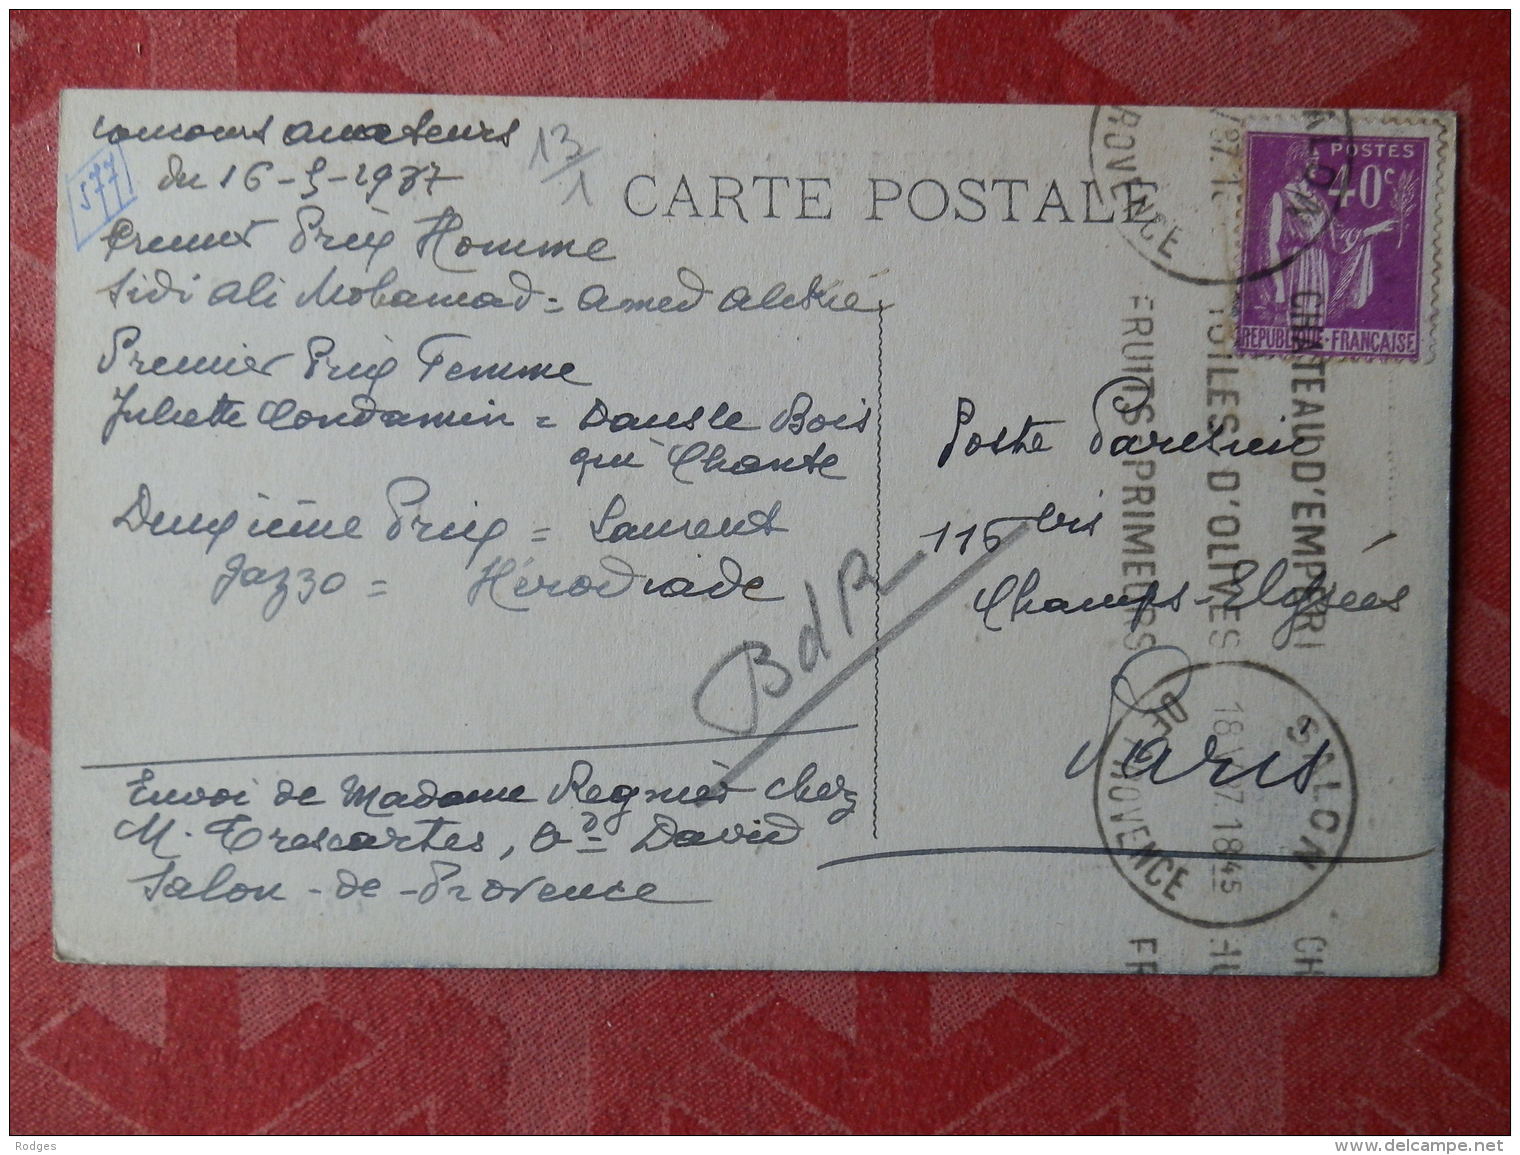 Concours amateurs
du 16-5-1937
577
13/1
CARTE POSTALE
Premier Prix Homme
Sidi Ali Mohamad = Amed
Premier Prix Femme
Juliette Condamin = Dans le Bois
qui Chante
Deuxième Prix = Laurent
Jazzo = Hérodiade
BdR
Envoi de Madame Regnier chez
M. Trescartes, Bd David
Salon-de-Provence
POSTES
40c
REPUBLIQUE-FRANÇAISE
Poste Parisien
116 bis
Champs-Elysées
Paris
SALON
PROVENCE
CHATEAU D'EMPERI
HUILES D'OLIVES
FRUITS PRIMEURS
SALON
18 V 37. 1845
PROVENCE
CH
HU
FR
Rodges
www.delcampe.net